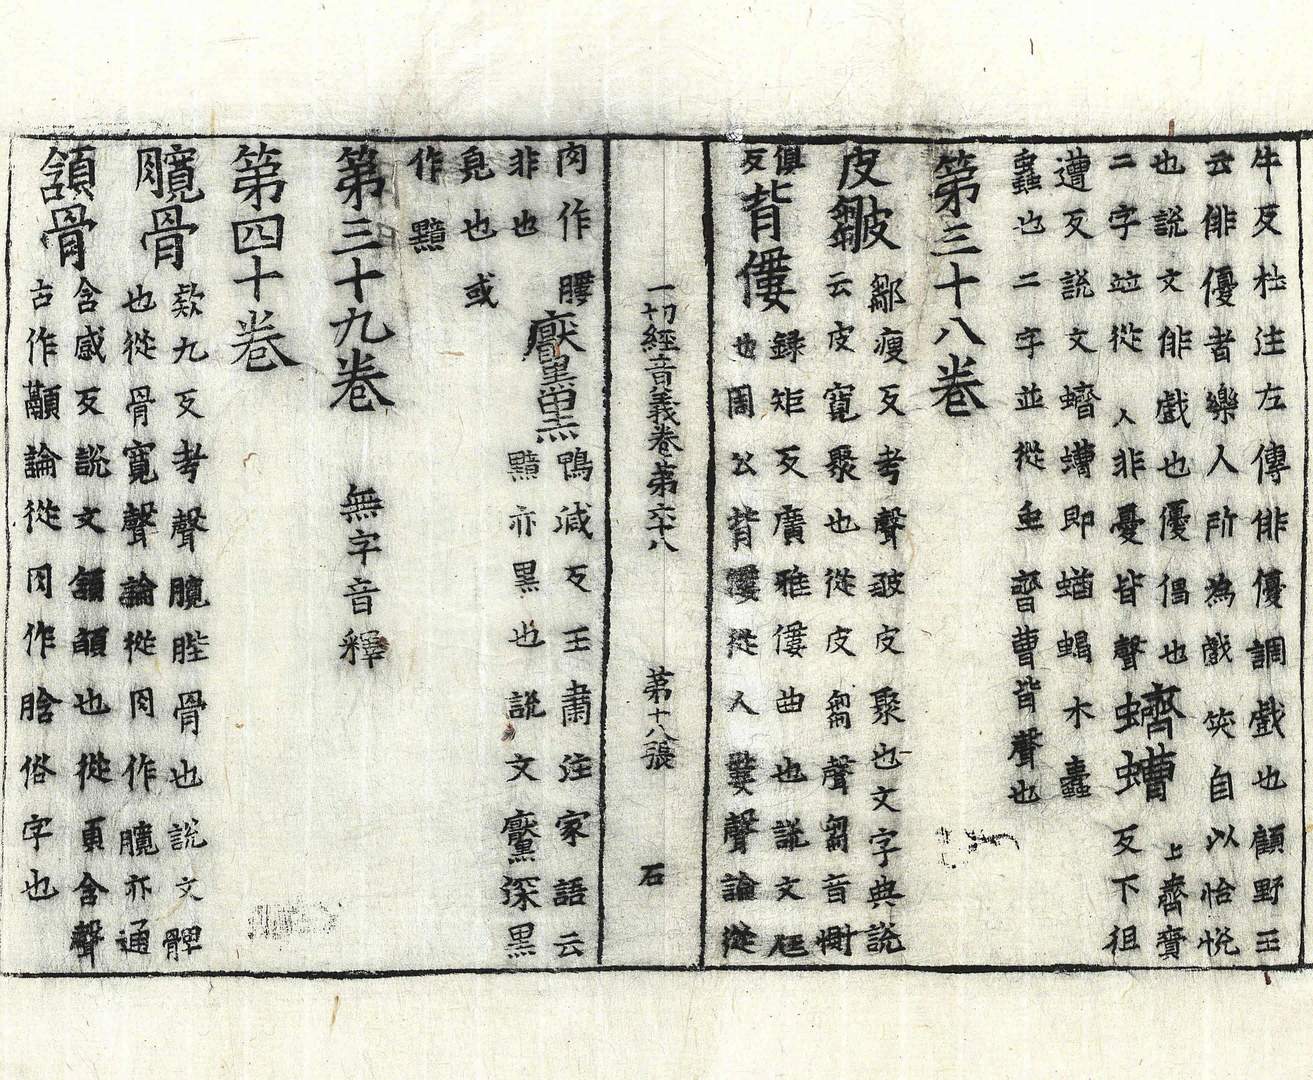 牛反杜注左傳俳優調戲也顧野王
云俳優者樂人所為戲笑自以怡悅
也說文俳戲也優倡也
二字竝從人非憂皆聲蠐螬上齊賫反下祖
遭反說文蠐螬即蝤蝎木蠹
蟲也二字並從䖝齊曹皆聲也
第三十八卷
皮皺鄒瘦反考聲皺皮聚也文字典說
云皮寬聚也從皮芻聲芻音惻
俱反背僂錄矩反廣雅僂曲也說文尫
也周公背僂從人婁聲論從
一切經音義卷第六十八 第十八張 石
肉作䐋非也黶黮鴨減反王肅注家語云
黯亦黑也說文黶深黑
皃也或
作黯
第三十九卷 無字音釋
第四十卷
臗骨欵九反考聲臗䏶骨也說文髀
也從骨寬聲論從肉作臗亦通
頷骨含感反說文頷頤也從頁含聲
古作顄論從肉作䏩俗字也